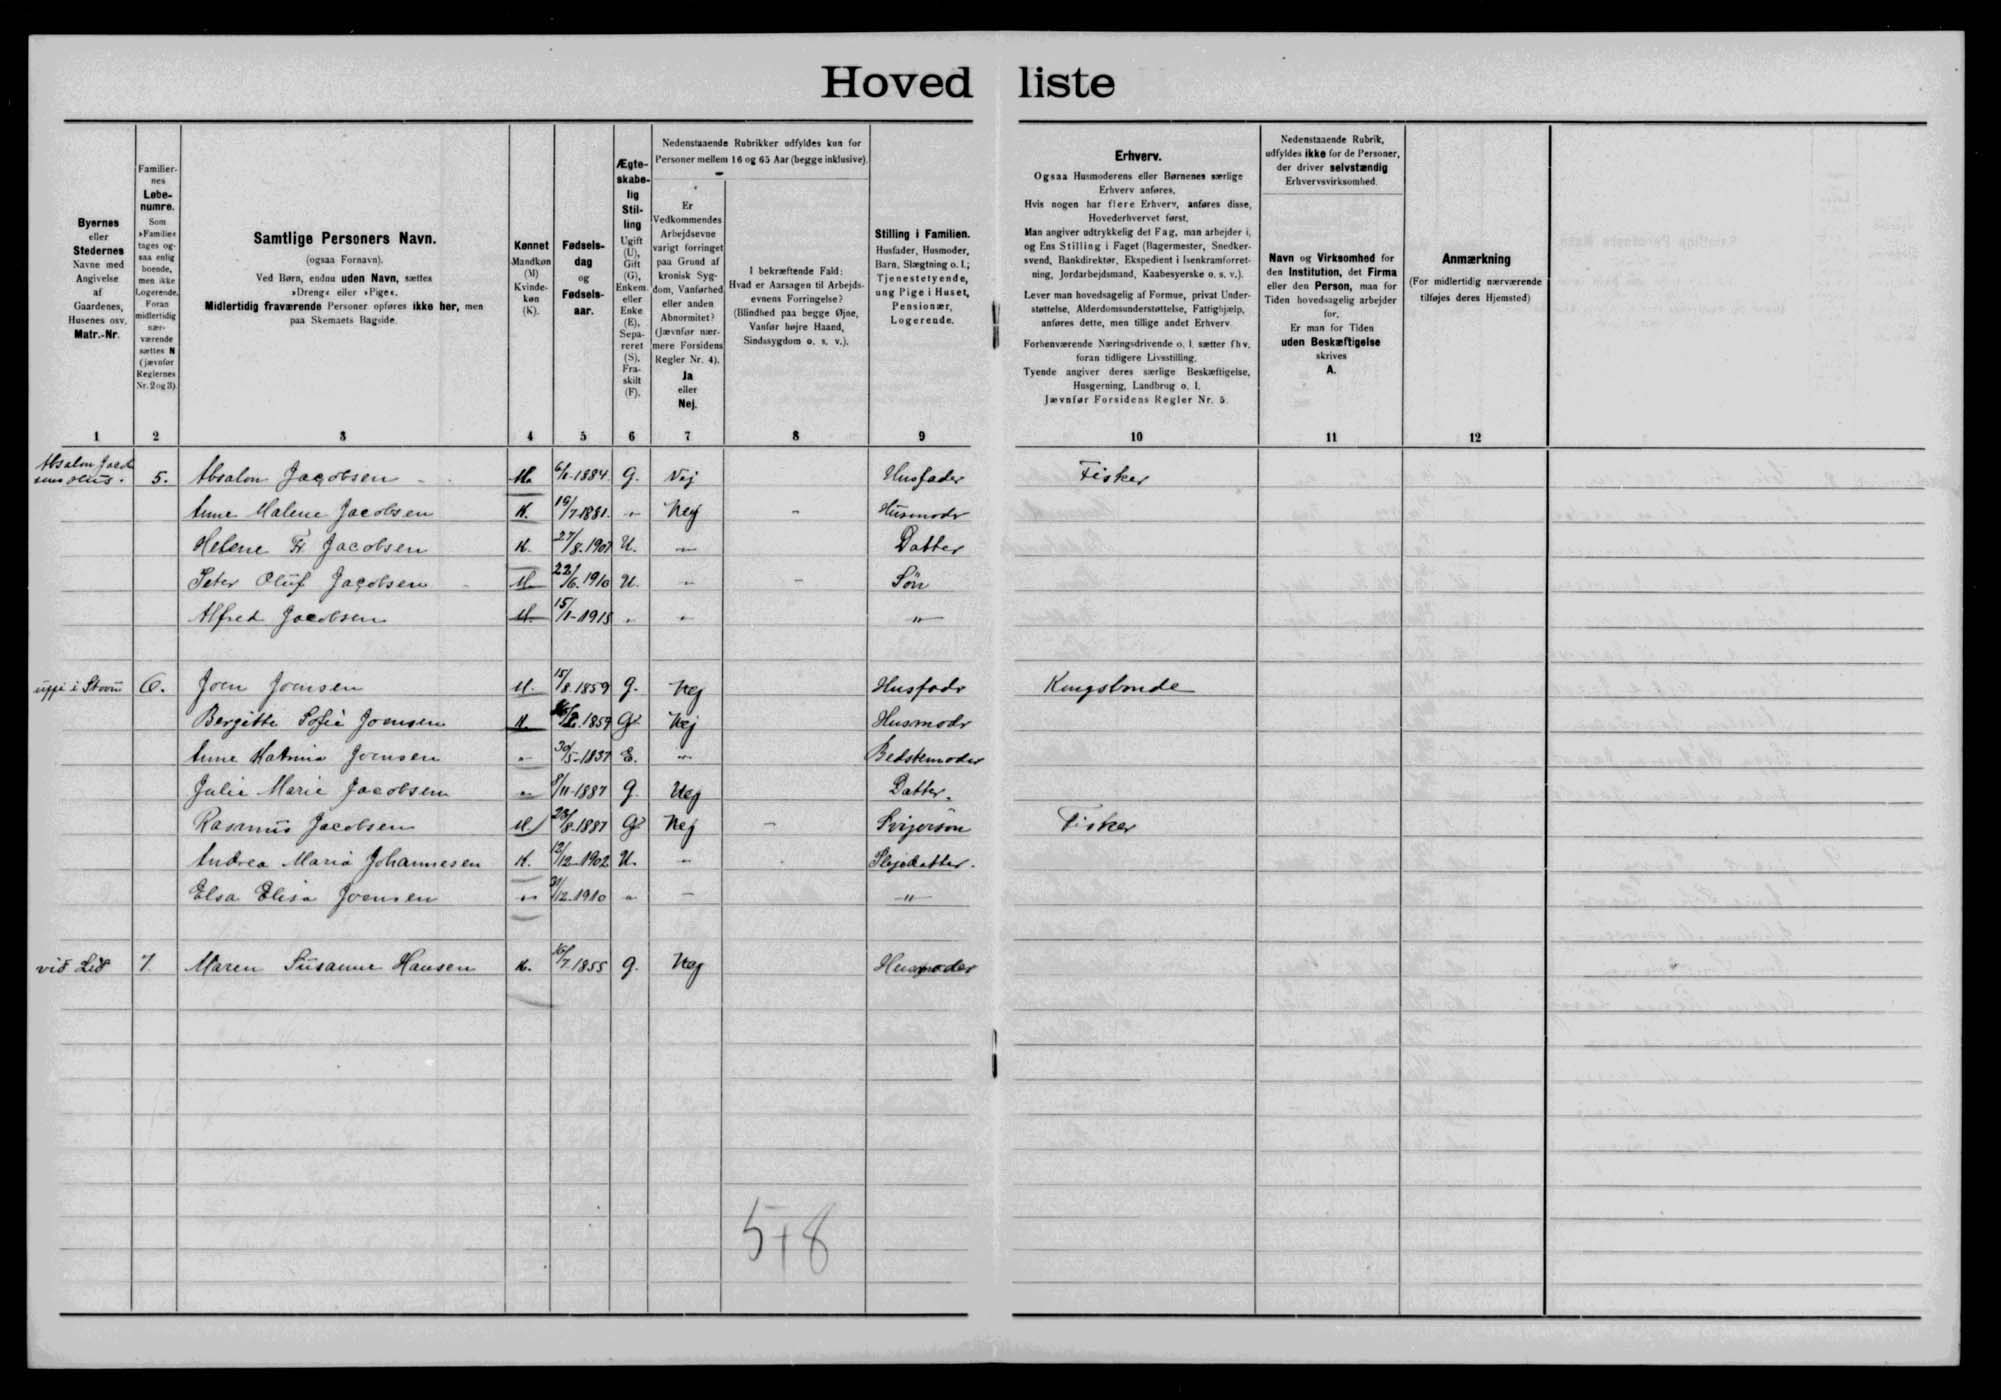 Hovedliste
Byernes eller Stedernes Navne med Angivelse af Gaardenes, Husenes osv. Matr.-Nr.
Familiernes Løbenumre. Som »Familie« tages ogsaa enlig boende, men ikke Logerende. Foran midlertidig nærværende sættes N (jævnfør Reglernes Nr. 2 og 3).
Samtlige Personers Navn.
(ogsaa Fornavn).
Ved Børn, endnu uden Navn, sættes
»Dreng« eller »Pige«.
Midlertidig fraværende Personer opføres ikke her, men
paa Skemaets Bagside.
Kønnet Mandkøn (M) Kvindekøn (K).
Fødselsdag og Fødselsaar.
Ægteskabelig Stilling Ugift (U), Gift (G), Enkem. eller Enke (E), Separeret (S), Fraskilt (F).
Nedenstaaende Rubrikker udfyldes kun for
Personer mellem 16 og 65 Aar (begge inklusive).
Er Vedkommendes Arbejdsevne varigt forringet paa Grund af kronisk Sygdom, Vanførhed eller anden Abnormitet? (Jævnfør nærmere Forsidens Regler Nr. 4). Ja eller Nej.
I bekræftende Fald: Hvad er Aarsagen til Arbejdsevnens Forringelse? (Blindhed paa begge Øjne, Vanfør højre Haand, Sindssygdom o. s. v.).
Stilling i Familien. Husfader, Husmoder, Barn, Slægtning o. l.; Tjenestetyende, ung Pige i Huset, Pensionær, Logerende.
Erhverv.
Ogsaa Husmoderens eller Børnenes særlige
Erhverv anføres.
Hvis nogen har flere Erhverv, anføres disse,
Hovederhvervet først.
Man angiver udtrykkelig det Fag, man arbejder i,
og Ens Stilling i Faget (Bagermester, Snedkersvend, Bankdirektør, Ekspedient i Isenkramforretning, Jordarbejdsmand, Kaabesyerske o. s. v.).
Lever man hovedsagelig af Formue, privat Understøttelse, Alderdomsunderstøttelse, Fattighjælp,
anføres dette, men tillige andet Erhverv.
Forhenværende Næringsdrivende o. l. sætter fhv.
foran tidligere Livsstilling.
Tyende angiver deres særlige Beskæftigelse,
Husgerning, Landbrug o. l.
Jævnfør Forsidens Regler Nr. 5.
Nedenstaaende Rubrik,
udfyldes ikke for de Personer,
der driver selvstændig
Erhvervsvirksomhed.
Navn og Virksomhed for
den Institution, det Firma
eller den Person, man for
Tiden hovedsagelig arbejder
for.
Er man for Tiden
uden Beskæftigelse
skrives
A.
Anmærkning
(For midlertidig nærværende
tilføjes deres Hjemsted)
1 2 3 4 5 6 7 8 9 10 11 12
5. Absalon Jacobsen M. 1884 G. Nej Husfader Fisker
Anne Malene Jacobsen K. 19/7-1881. " Nej - Husmodr
Helene Fr. Jacobsen K. 27/8-1907 U. " Datter
Peter Oluf Jacobsen M. 22/6-1910 U. " - Sön
Alfred Jacobsen M. 15/1-1915 " " "
uppi i Stovu 6. Joen Joensen M. 15/8-1859 G. Nej Husfadr Kongsbonde
Bergitte Sofie Joensen K. 1859 G. Nej Husmodr
Anne Katrina Joensen " 30/5-1837 E. " Bedstemoder
Julie Marie Jacobsen " 8/11-1887 G. Nej Datter.
Rasmus Jacobsen M. 28/8-1887 G. Nej - Svigersön Fisker
Andrea Maria Johannesen K. 12/12-1902 U. " Plejedatter.
Elsa Elisa Joensen " 31/12-1910 " - "
við Lið 7. Maren Susanne Hansen K. 16/7-1855 G. Nej Husmoder
5+8